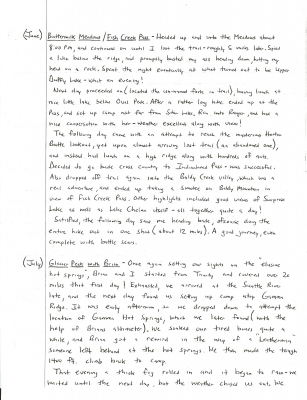 (June) Buttermilk Meadow / Fish Creek Pass - Headed up and into the Meadows about
8:00 PM, and continued on until I lost the trail - roughly 5 miles later. Spied
a lake below the ridge, and promptly busted my ass heading down, hitting my
head on a rock. Spent the night eventually at what turned out to be Upper
Oval Lake - what an evening!
Next day proceeded on (located the unmarked fork in trail), having lunch at
nice little lake below Oval Peak. After a rather long hike ended up at the
Pass, and set up camp not far from Star Lake. Ran into Ranger and had a
nice conversation with her - weather excellent along with view!
The following day came with an attempt to reach the mysterious Horton
Butte Lookout, yet upon almost arriving lost trail (an abandoned one),
and instead had lunch on a high ridge along with hundreds of ants.
Decided to go back cross country to Indianhead Pass - was successful.
Also dropped off trail again into the Baldy Creek valley, which was a
real adventure, and ended up taking a snooze on Baldy Mountain in
view of Fish Creek Pass. Other highlights included good views of Surprise
Lake as well as Lake Chelan itself - all together quite a day!
Satisfied, the following day saw me heading back, cruising along the
entire hike out in one shot (about 12 miles). A good journey, even
complete with battle scars.
(July) Glacier Peak with Brian - Once again setting our sights on the 'elusive
hot springs', Brian and I started from Trinity and covered over 20
miles that first day! Exhausted, we arrived at the Suiattle River
late, and the next day found us setting up camp atop Gamma
Ridge. It was early afternoon, so we dropped down to attempt the
location of Gamma Hot Springs, which we later found (with the
help of Brians altimeter). We soaked our tired bones quite a
while, and Brian got a reward in the way of a Leatherman
someone left behind at the hot springs. We then made the tough
1400 ft. climb back to camp.
That evening a thick fog rolled in and it began to rain - we
waited until the next day, but the weather chased us out. We